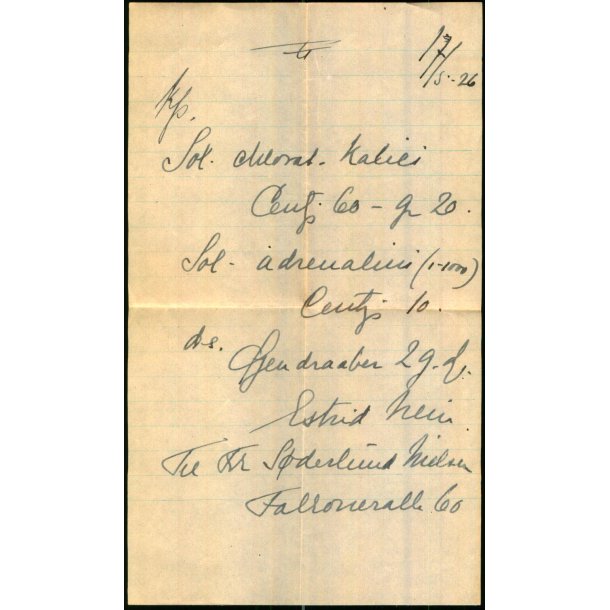 17/5-26
Rp.
Sol. chlorat. Kalici
Centig 60 - gr 20.
Sol. adrenalini (1-1000)
Centig 10.
ds. Øjendraaber 2 g. d.
Estrid
Til Fr Søderlund Nielsen
Falkoneralle 60